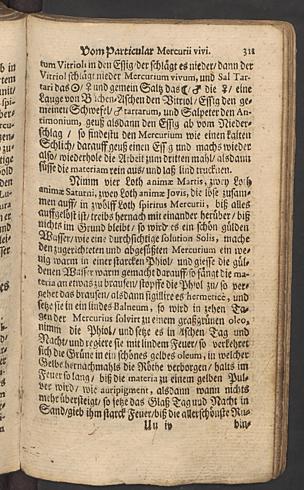 Vom Particular Mercurii vivi. 318
tum Vitrioli in den Essig/ der schlägt es nieder/ dann der
Vitriol schlägt nieder Mercurium vivum, und Sal Tar-
tari das ☉/ und gemein Saltz das ☾/ die
Lauge von Büchen-Aschen den Vitriol/ Essig den ge-
meinen Schwefel/ ♂ tartarum, und Salpeter den An-
timonium, geuß alsdann den Essig ab vom Nieder-
schlag/ so findestu den Mercurium wie einen kalten
Schlich/ darauff geuß einen Essig und machs wieder
also/ wiederhole die Arbeit zum dritten mahl/ alsdann
süsse die materiam rein aus/ und laß sind trucknen.
Nimm vier Loth animæ Martis, zwey Loth
animæ Saturni, zwey Loth animæ Jovis, die löse zusam-
men auff/ in zwölff Loth spiritus Mercurii, biß alles
auffgelöst ist/ treibs hernach mit einander herüber/ biß
nichts im Grund bleibt/ so wird es ein schön gülden
Wasser/ wie eine durchsichtige solution Solis, mache
den zugerichteten und abgesüßten Mercurium ein we-
nig warm in einer starcken Phiol/ und giesse die gül-
denen Wasser warm gemacht darauff/ so fängt die ma-
teria an etwas zu brausen/ stopffe die Phiol zu/ so ver-
gehet das brausen/ alsdann sigillire es hermeticè, und
setze sie in ein lindes Balneum, so wird in zehen Ta-
gen der Mercurius solvirt zu einem graßgrünen oleo,
nimm die Phiol/ und setze es in Aschen Tag und
Nacht/ und regiere sie mit lindem Feuer/ so verkehret
sich die Grüne in ein schönes gelbes oleum, in welcher
Gelbe hernachmahls die Röthe verborgen/ halts im
Feuer so lang/ biß die materia zu einem gelben Pul-
ver wird/ wie auripigment, alsdann wann nichts
mehr übersteigt/ so setze das Glaß Tag und Nacht in
Sand/ gieb ihm starck Feuer/ biß die allerschönste Ru-
Uu iv bin-